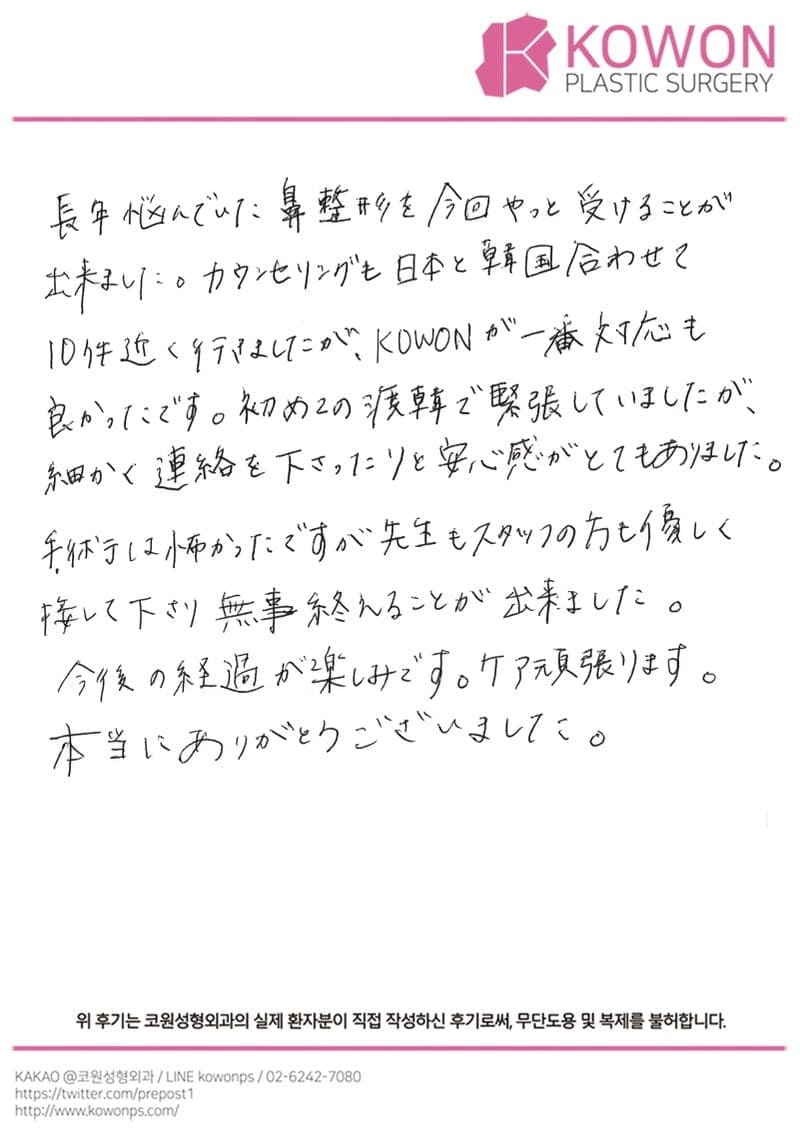 KOWON
PLASTIC SURGERY
長年悩んでいた鼻整形を今回やっと受けることが
出来ました。カウンセリングも日本と韓国合わせて
10件近く行きましたが、KOWONが一番対応も
良かったです。初めての渡韓で緊張していましたが、
細かく連絡を下さったりと安心感がとてもありました。
手術は怖かったですが先生もスタッフの方も優しく
接して下さり無事終えることが出来ました。
今後の経過が楽しみです。ケア頑張ります。
本当にありがとうございました。
위 후기는 코원성형외과의 실제 환자분이 직접 작성하신 후기로써, 무단도용 및 복제를 불허합니다.
KAKAO @코원성형외과 / LINE kowonps / 02-6242-7080
https://twitter.com/prepost1
http://www.kowonps.com/